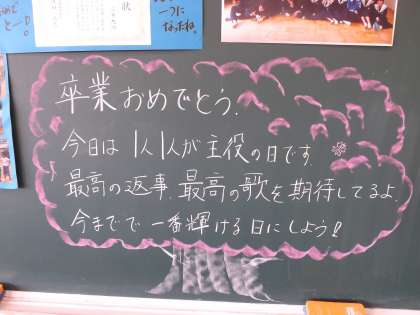 一つに
なったね。
状
卒業おめでとう.
今日は1人1人が主役の日です.
最高の返事.最高の歌を期待してるよ.
今までで一番輝ける日にしよう!!